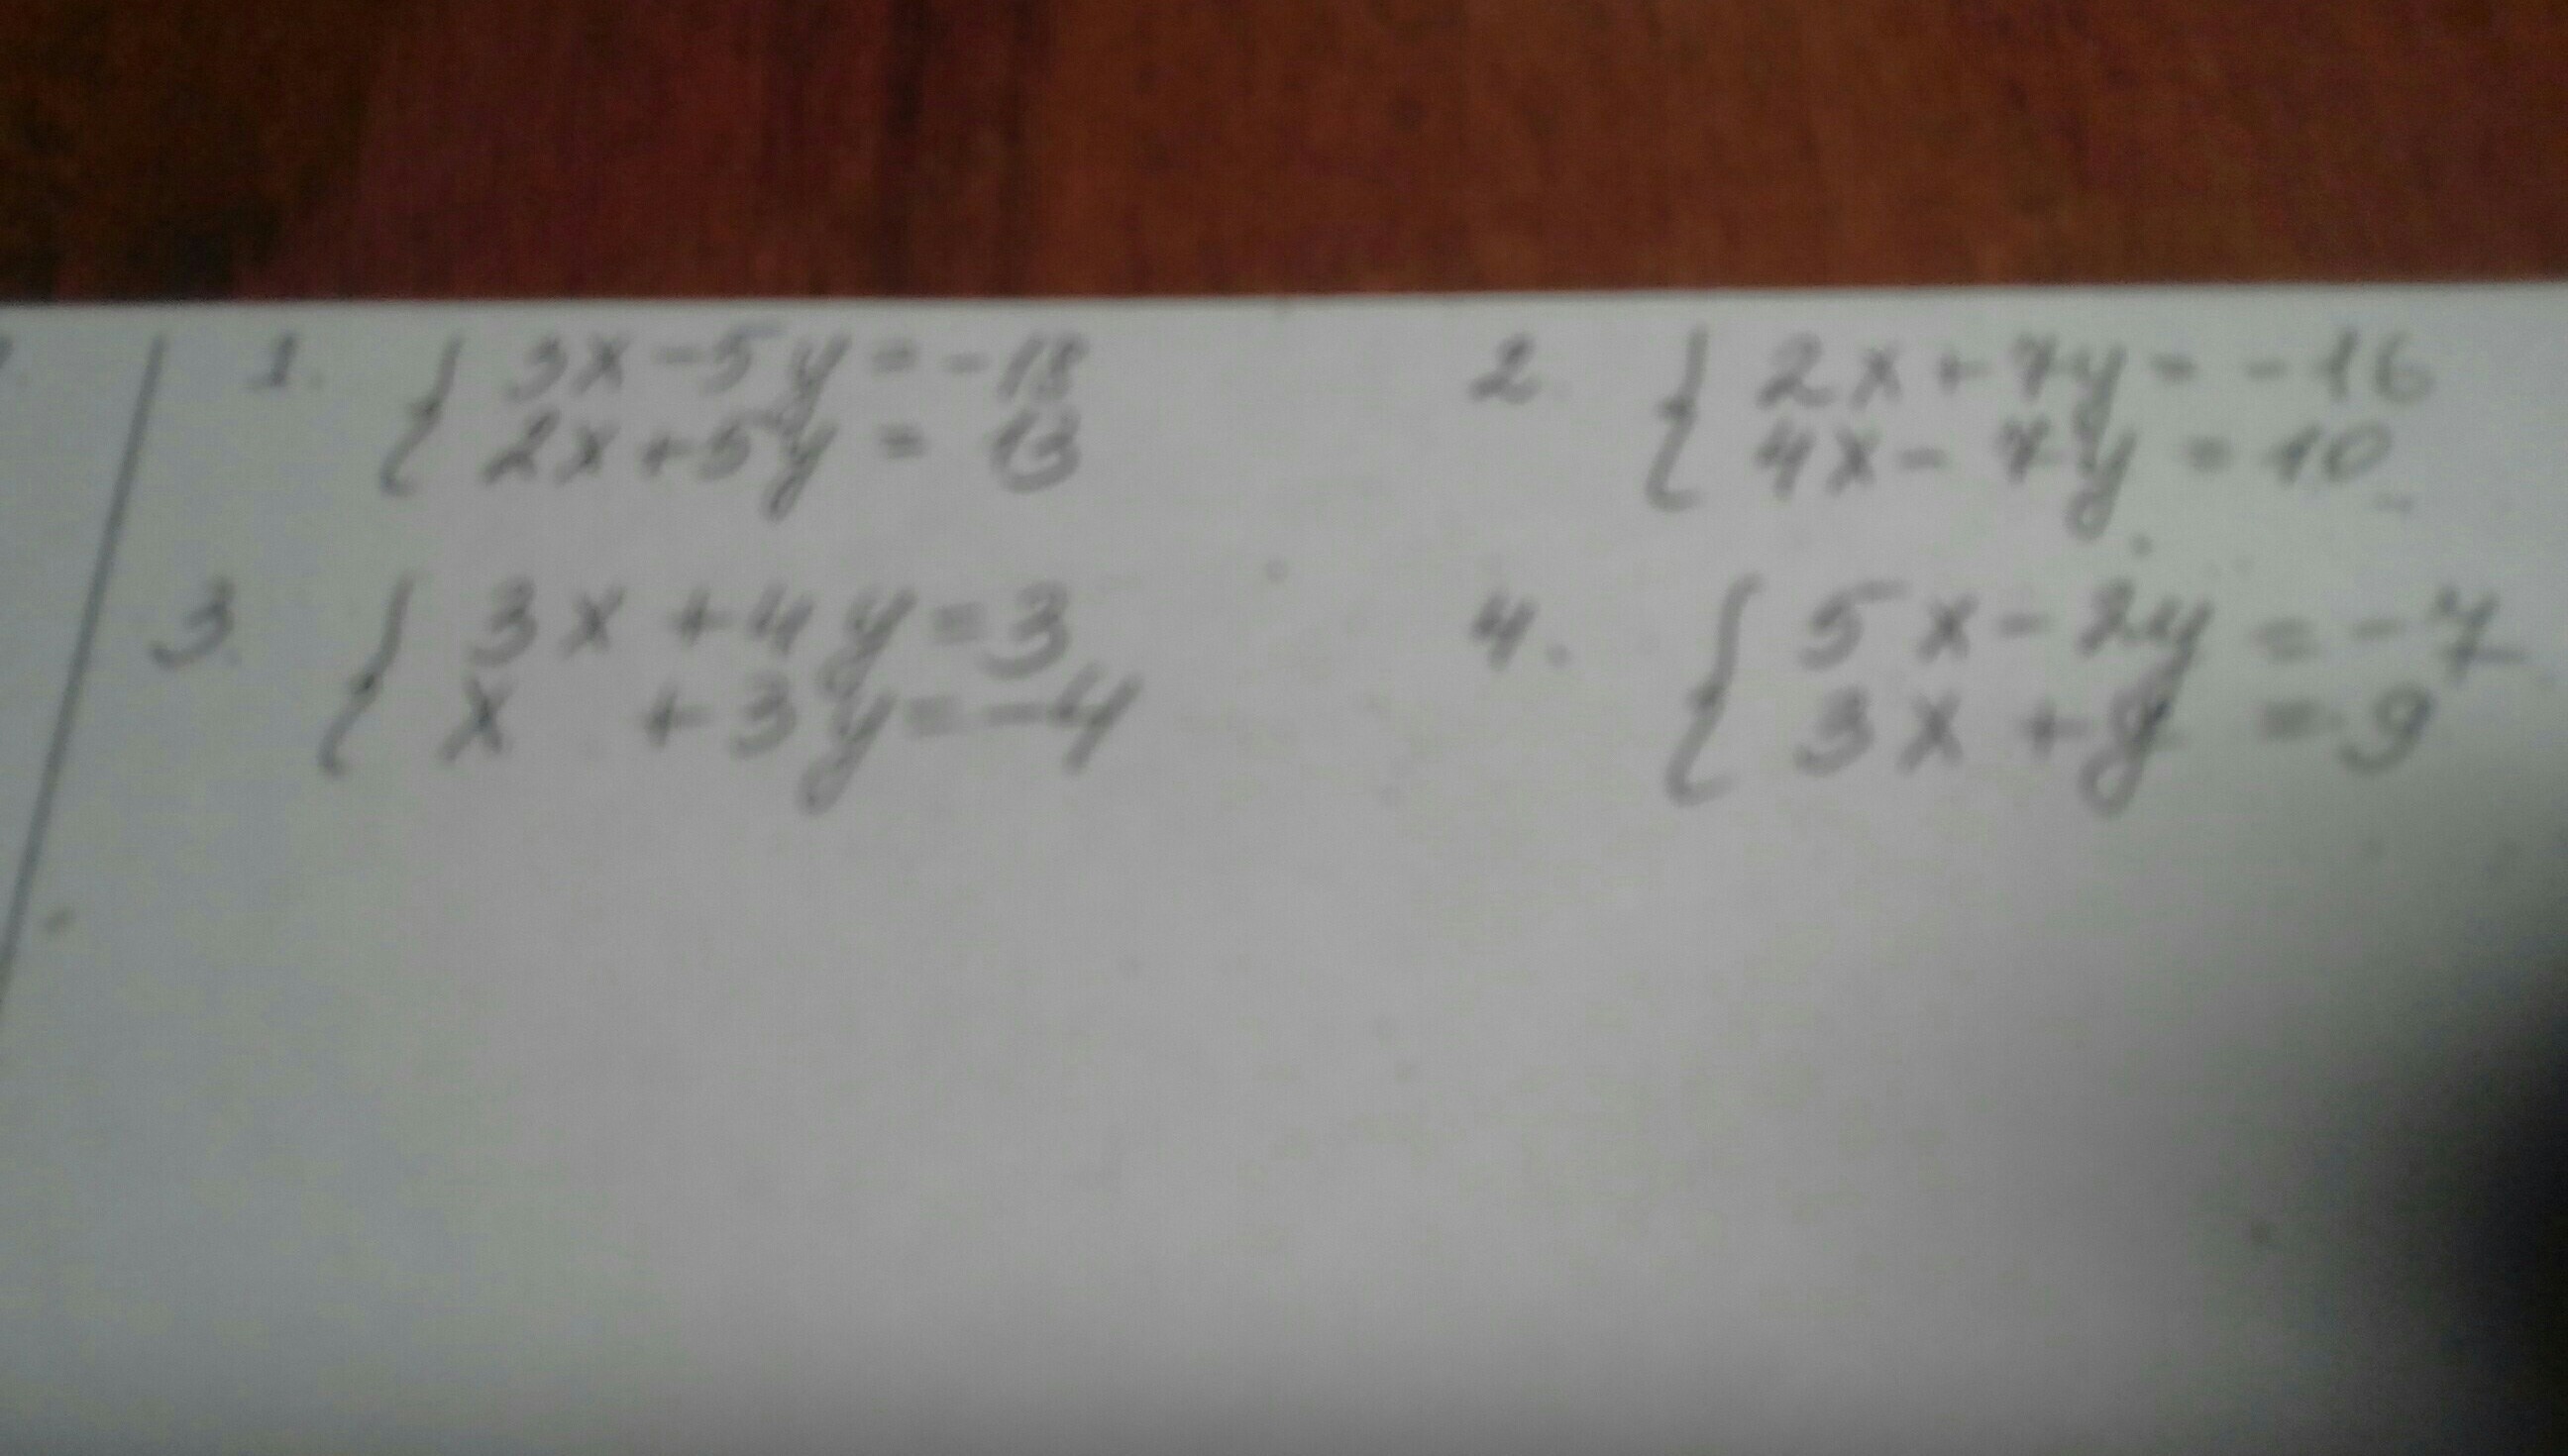 1. { 3x-5y=-18
2x+5y= 13
2 { 2x+7y=-16
4x-7y=10
3. { 3x+4y=3
x +3y=-4
4. { 5x-2y=-7
3x+y =9